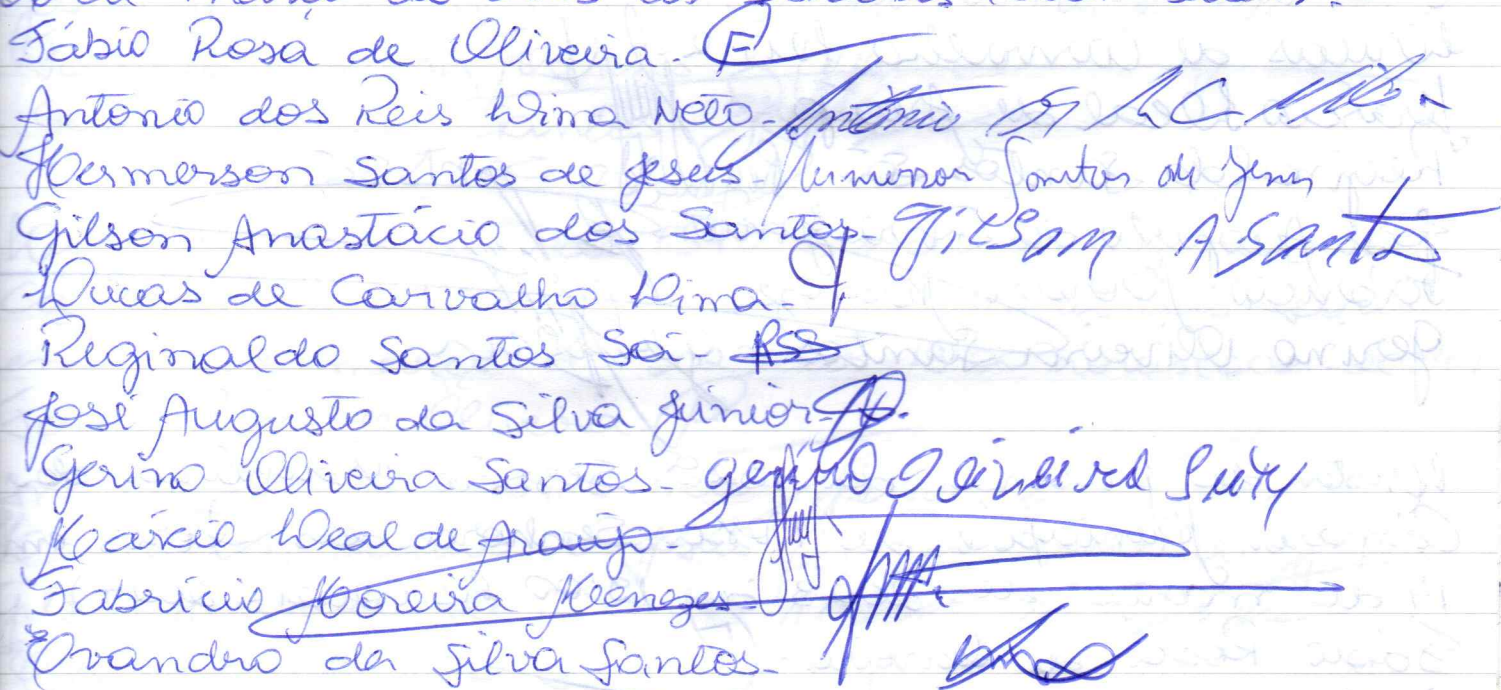 Fábio Rosa de Oliveira-
Antonio dos Reis Lima Neto- Antônio
Hermerson Santos de Jesus- Hermerson Santos de Jesus
Gilson Anastácio dos Santos- Gilson A Santo
Lucas de Carvalho Lima-
Reginaldo Santos Sá- RSS
José Augusto da Silva Júnior-
Gerino Oliveira Santos- gerino Oliveira
Márcio Leal de Araújo-
Fabrício Moreira Menezes-
Evandro da Silva Santos-